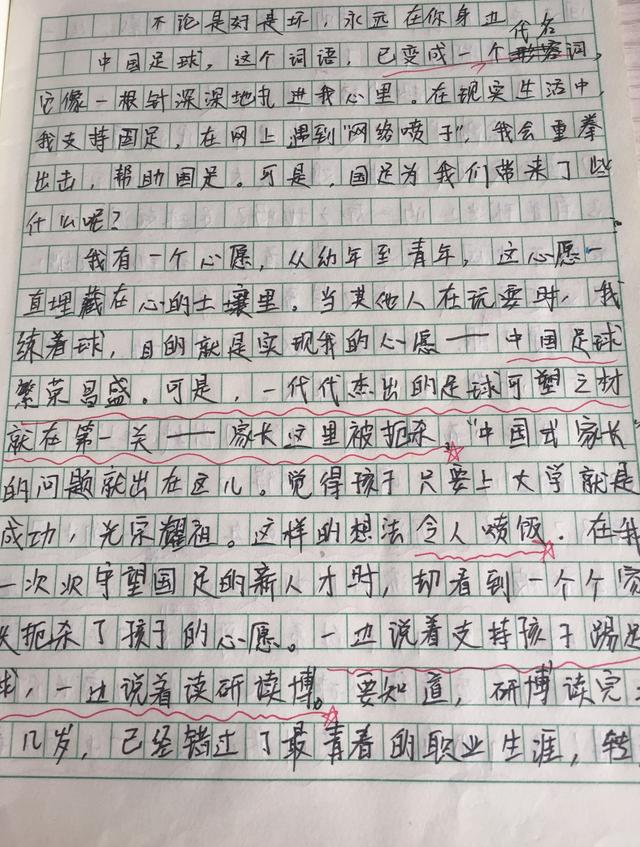 不论是好是坏，永远在你身边
代名
中国足球，这个词语，已变成一个形容词，
它像一根针深深地扎进我心里。在现实生活中，
我支持国足，在网上遇到“网络喷子”，我会重拳
出击，帮助国足。可是，国足为我们带来了些
什么呢？
我有一个心愿，从幼年至青年，这心愿一
直埋藏在心的土壤里。当其他人在玩耍时，我
练着球，目的就是实现我的心愿——中国足球
繁荣昌盛。可是，一代代杰出的足球可塑之材
就在第一关——家长这里被扼杀。“中国式家长”
的问题就出在这儿。觉得孩子只要上大学就是
成功，光宗耀祖。这样的想法令人喷饭。在我
一次次守望国足的新人才时，却看到一个个家
扼杀了孩子的心愿。一边说着支持孩子踢足
球，一边说着读研读博。要知道，研博读完
几岁，已经错过了最青春的职业生涯，转